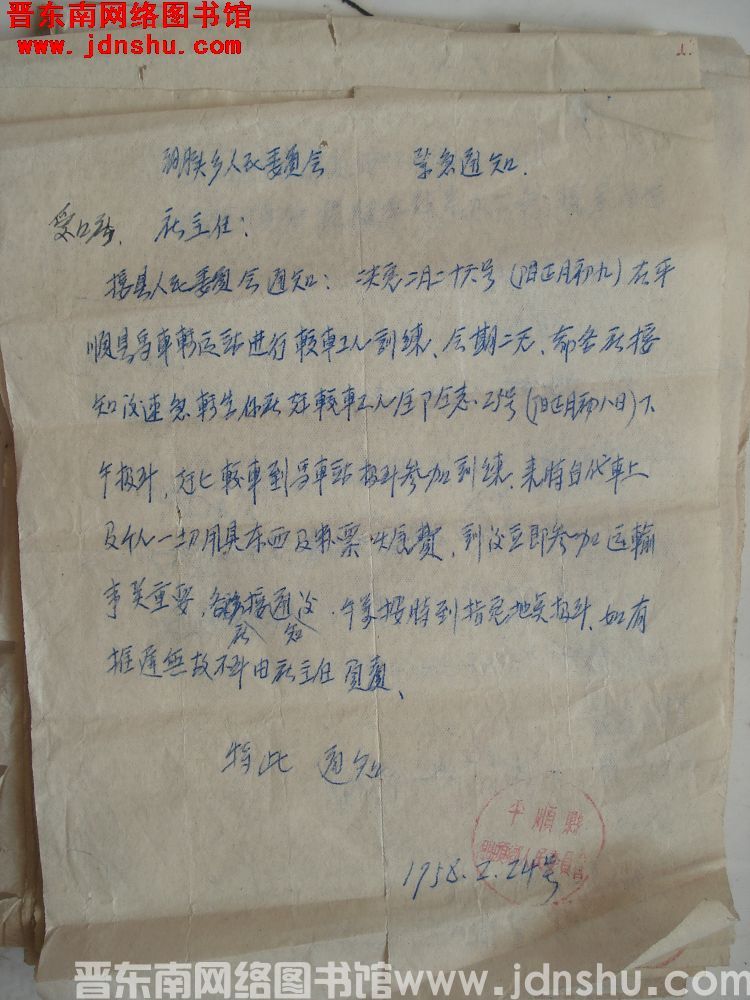 晋东南网络图书馆
www.jdnshu.com
乡人民委员会 紧急通知.
社主任：
接县人民委员会通知：决定二月二十六号(阴正月初九)在平
顺县马车转运站进行 车工人训练、会期二天、希各社接
知后速急转告你社赶 车工人 25号(阴正月初八日)下
午报到，赶上 车到马车站报到参加训练，来时自代车上
及个人一切用具东西及粮票 费，到后立即参加运输
事关重要，各社接通知后 按时到指定地点报到、如有
推迟无故不到由社主任负责、
特此 通知
1958.2.24号
平顺县
乡人民委员会
晋东南网络图书馆www.jdnshu.com